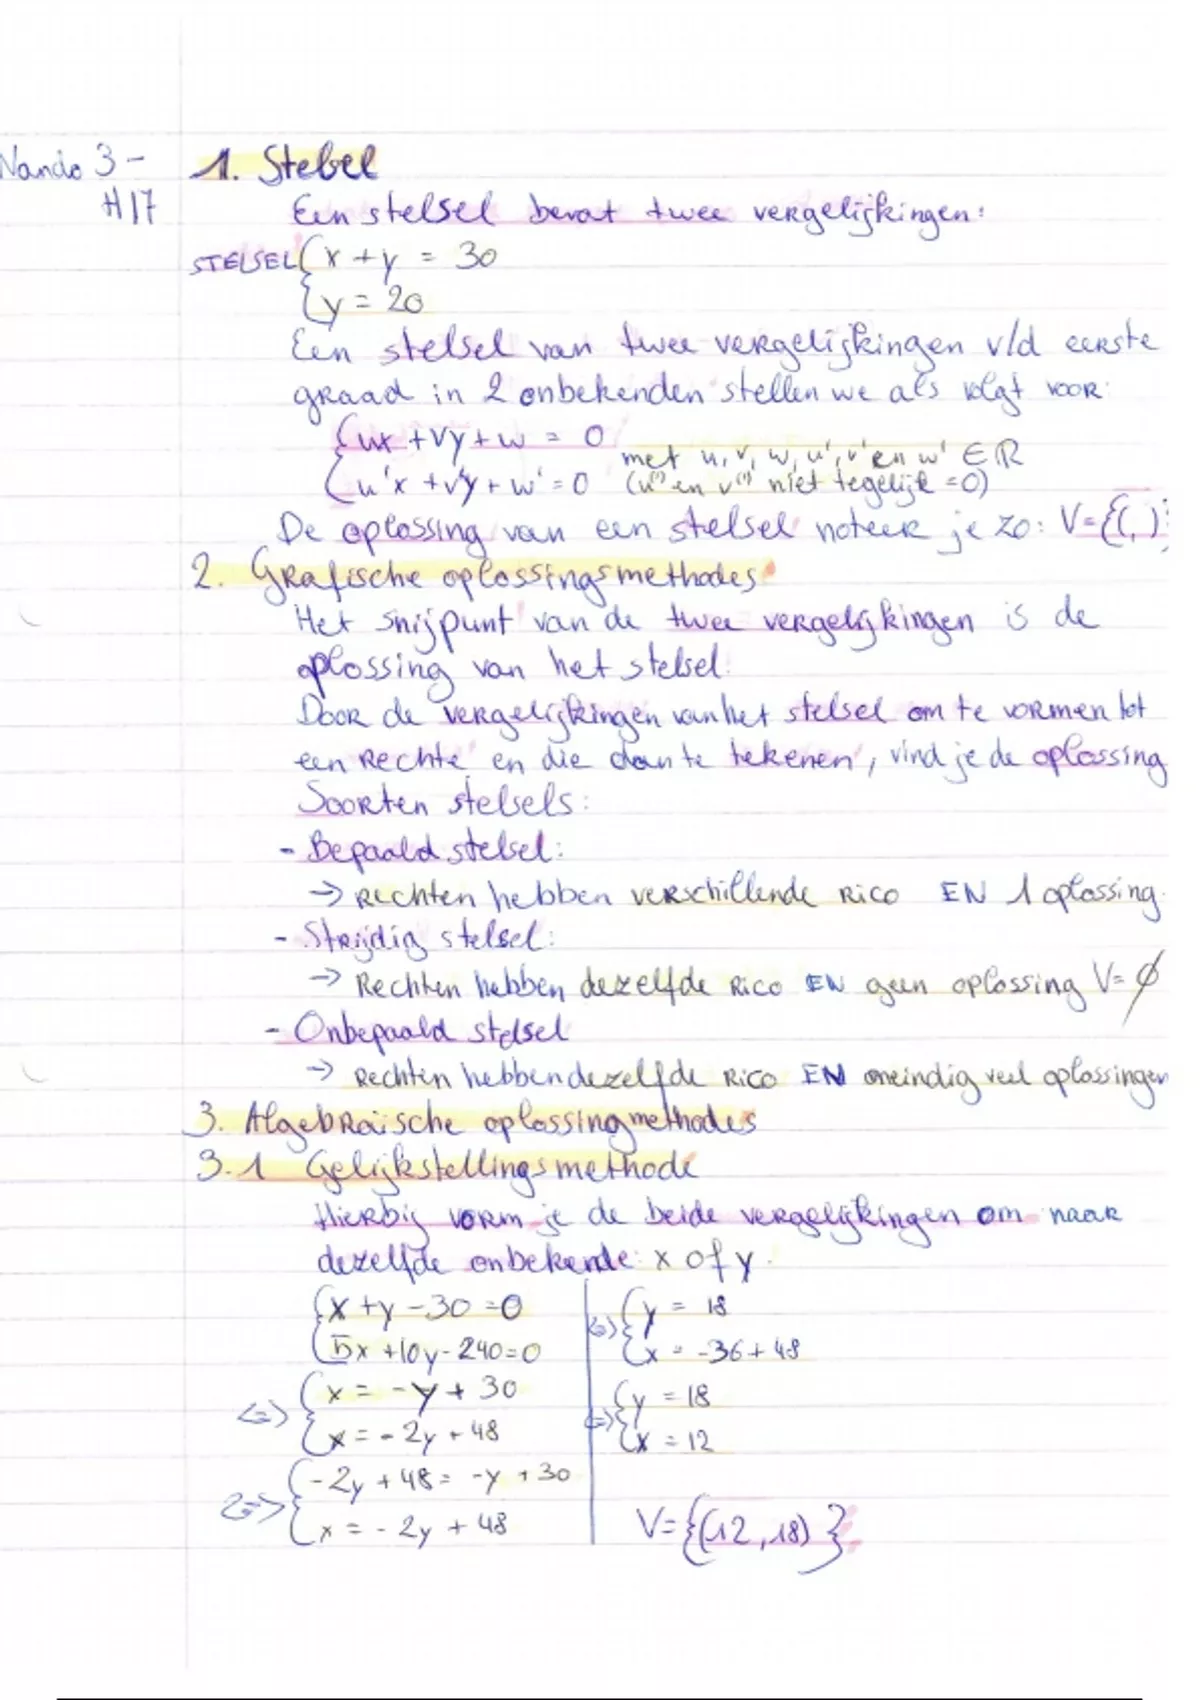 Nando 3 - 1. Stelsel
H17 Een stelsel bevat twee vergelijkingen:
STELSEL { x + y = 30
{ y = 20
Een stelsel van twee vergelijkingen v/d eerste
graad in 2 onbekenden stellen we als volgt voor:
{ ux + vy + w = 0
met u, v, w, u', v' en w' ∈ ℝ
{ u'x + v'y + w' = 0 (u(') en v(') niet tegelijk = 0)
De oplossing van een stelsel noteer je zo: V={(,)}
2. Grafische oplossingsmethodes
Het snijpunt van de twee vergelijkingen is de
oplossing van het stelsel.
Door de vergelijkingen van het stelsel om te vormen tot
een rechte en die dan te tekenen, vind je de oplossing
Soorten stelsels:
- Bepaald stelsel:
→ Rechten hebben verschillende Rico EN 1 oplossing.
- Strijdig stelsel:
→ Rechten hebben dezelfde Rico EN geen oplossing V= ∅
- Onbepaald stelsel
→ Rechten hebben dezelfde Rico EN oneindig veel oplossingen
3. Algebraïsche oplossingmethodes
3.1 Gelijkstellingsmethode
Hierbij vorm je de beide vergelijkingen om naar
dezelfde onbekende: x of y.
{ x + y - 30 = 0
{ 5x + 10y - 240 = 0
<=> { x = -y + 30
{ x = -2y + 48
<=> { -2y + 48 = -y + 30
{ x = -2y + 48
<=> { y = 18
{ x = -36 + 48
<=> { y = 18
{ x = 12
V={(12,18)}